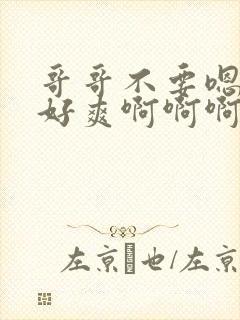 哥哥不要嗯
好爽啊啊啊
左京也/左京